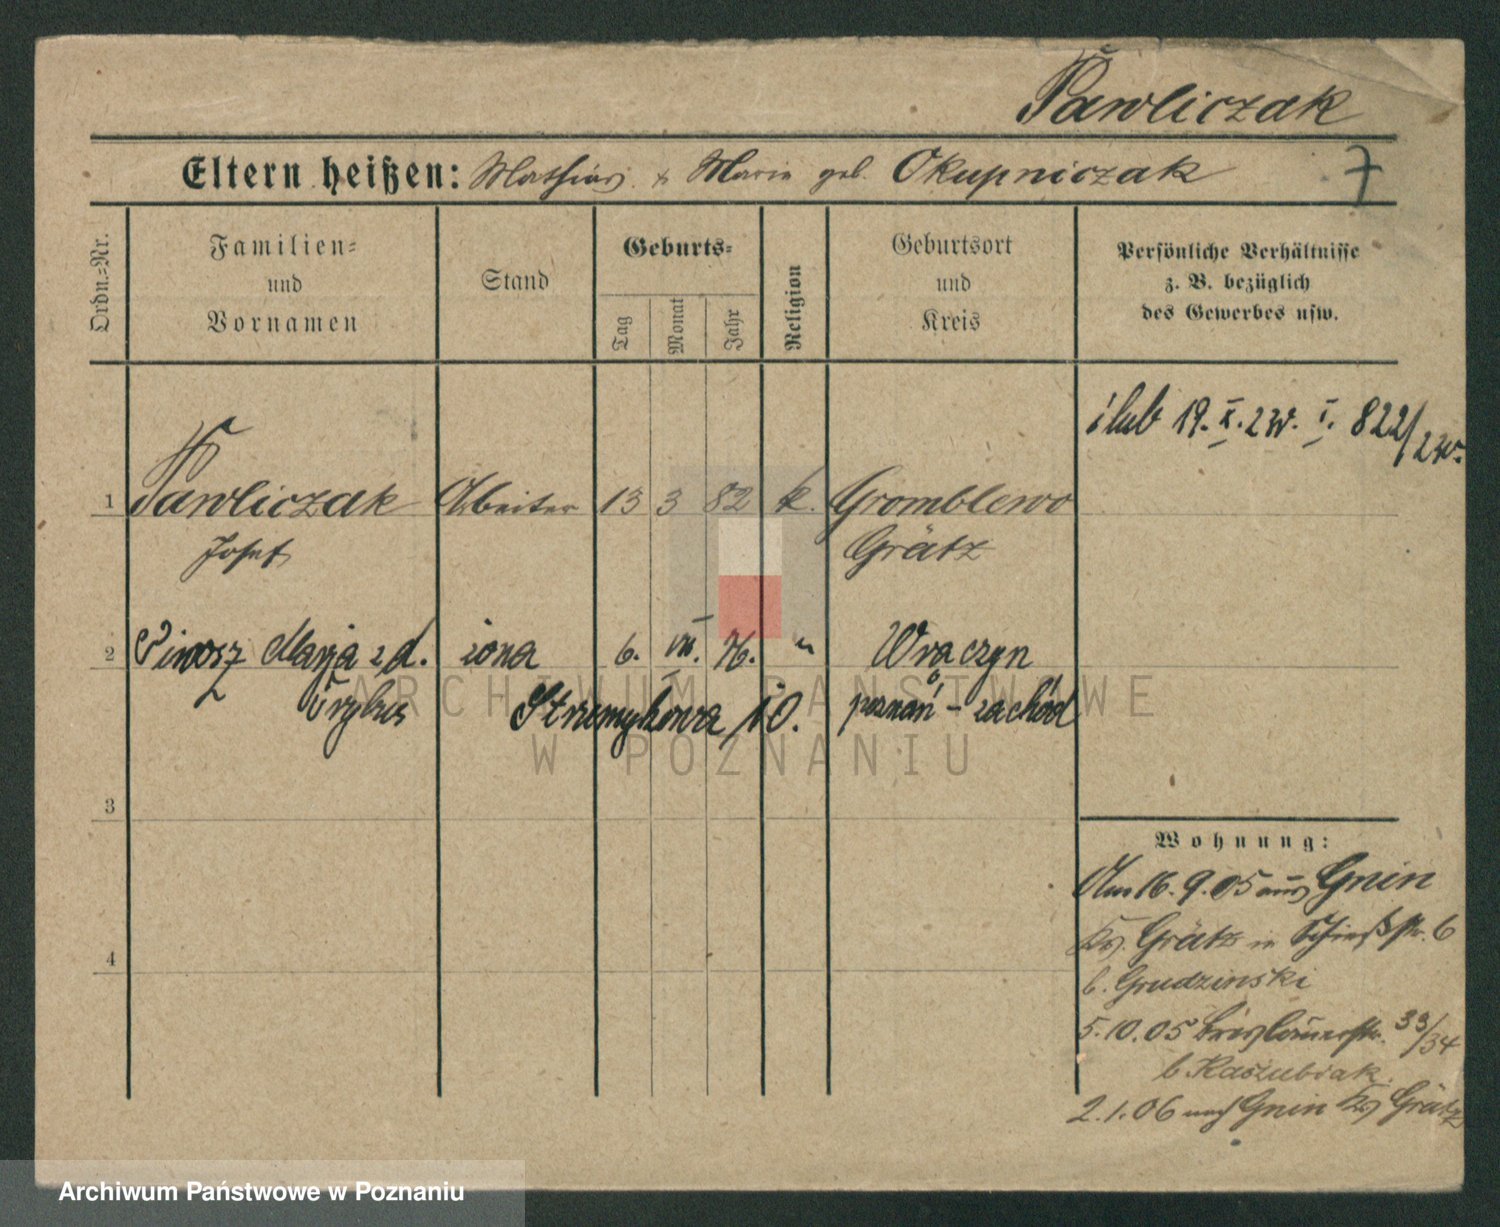 Pawliczak
Eltern heißen: Mathias & Marie geb. Okupniczak
7
Ordn.-Nr.
Familien-
und
Vornamen
Stand
Geburts-
Tag
Monat
Jahr
Religion
Geburtsort
und
Kreis
Persönliche Verhältnisse
z. B. bezüglich
des Gewerbes usw.
ślub 19. X. 2 w. I. 822/2 w.
1 Pawliczak Arbeiter 13 3 82 k. Gromblewo
Josef Grätz
2 Marja z d. żona 6. VII. 76. " Wrączyn
Strumykowa 10. poznań - zachód
ARCHIWUM PAŃSTWOWE
W POZNANIU
3
Wohnung:
Am 16. 9. 05 aus Gnin
Krs. Grätz in Schießstr. 6
b. Grudzinski
5. 10. 05 33/34
b Kaszubiak.
2. 1. 06 nach Gnin Krs Grätz
4
Archiwum Państwowe w Poznaniu